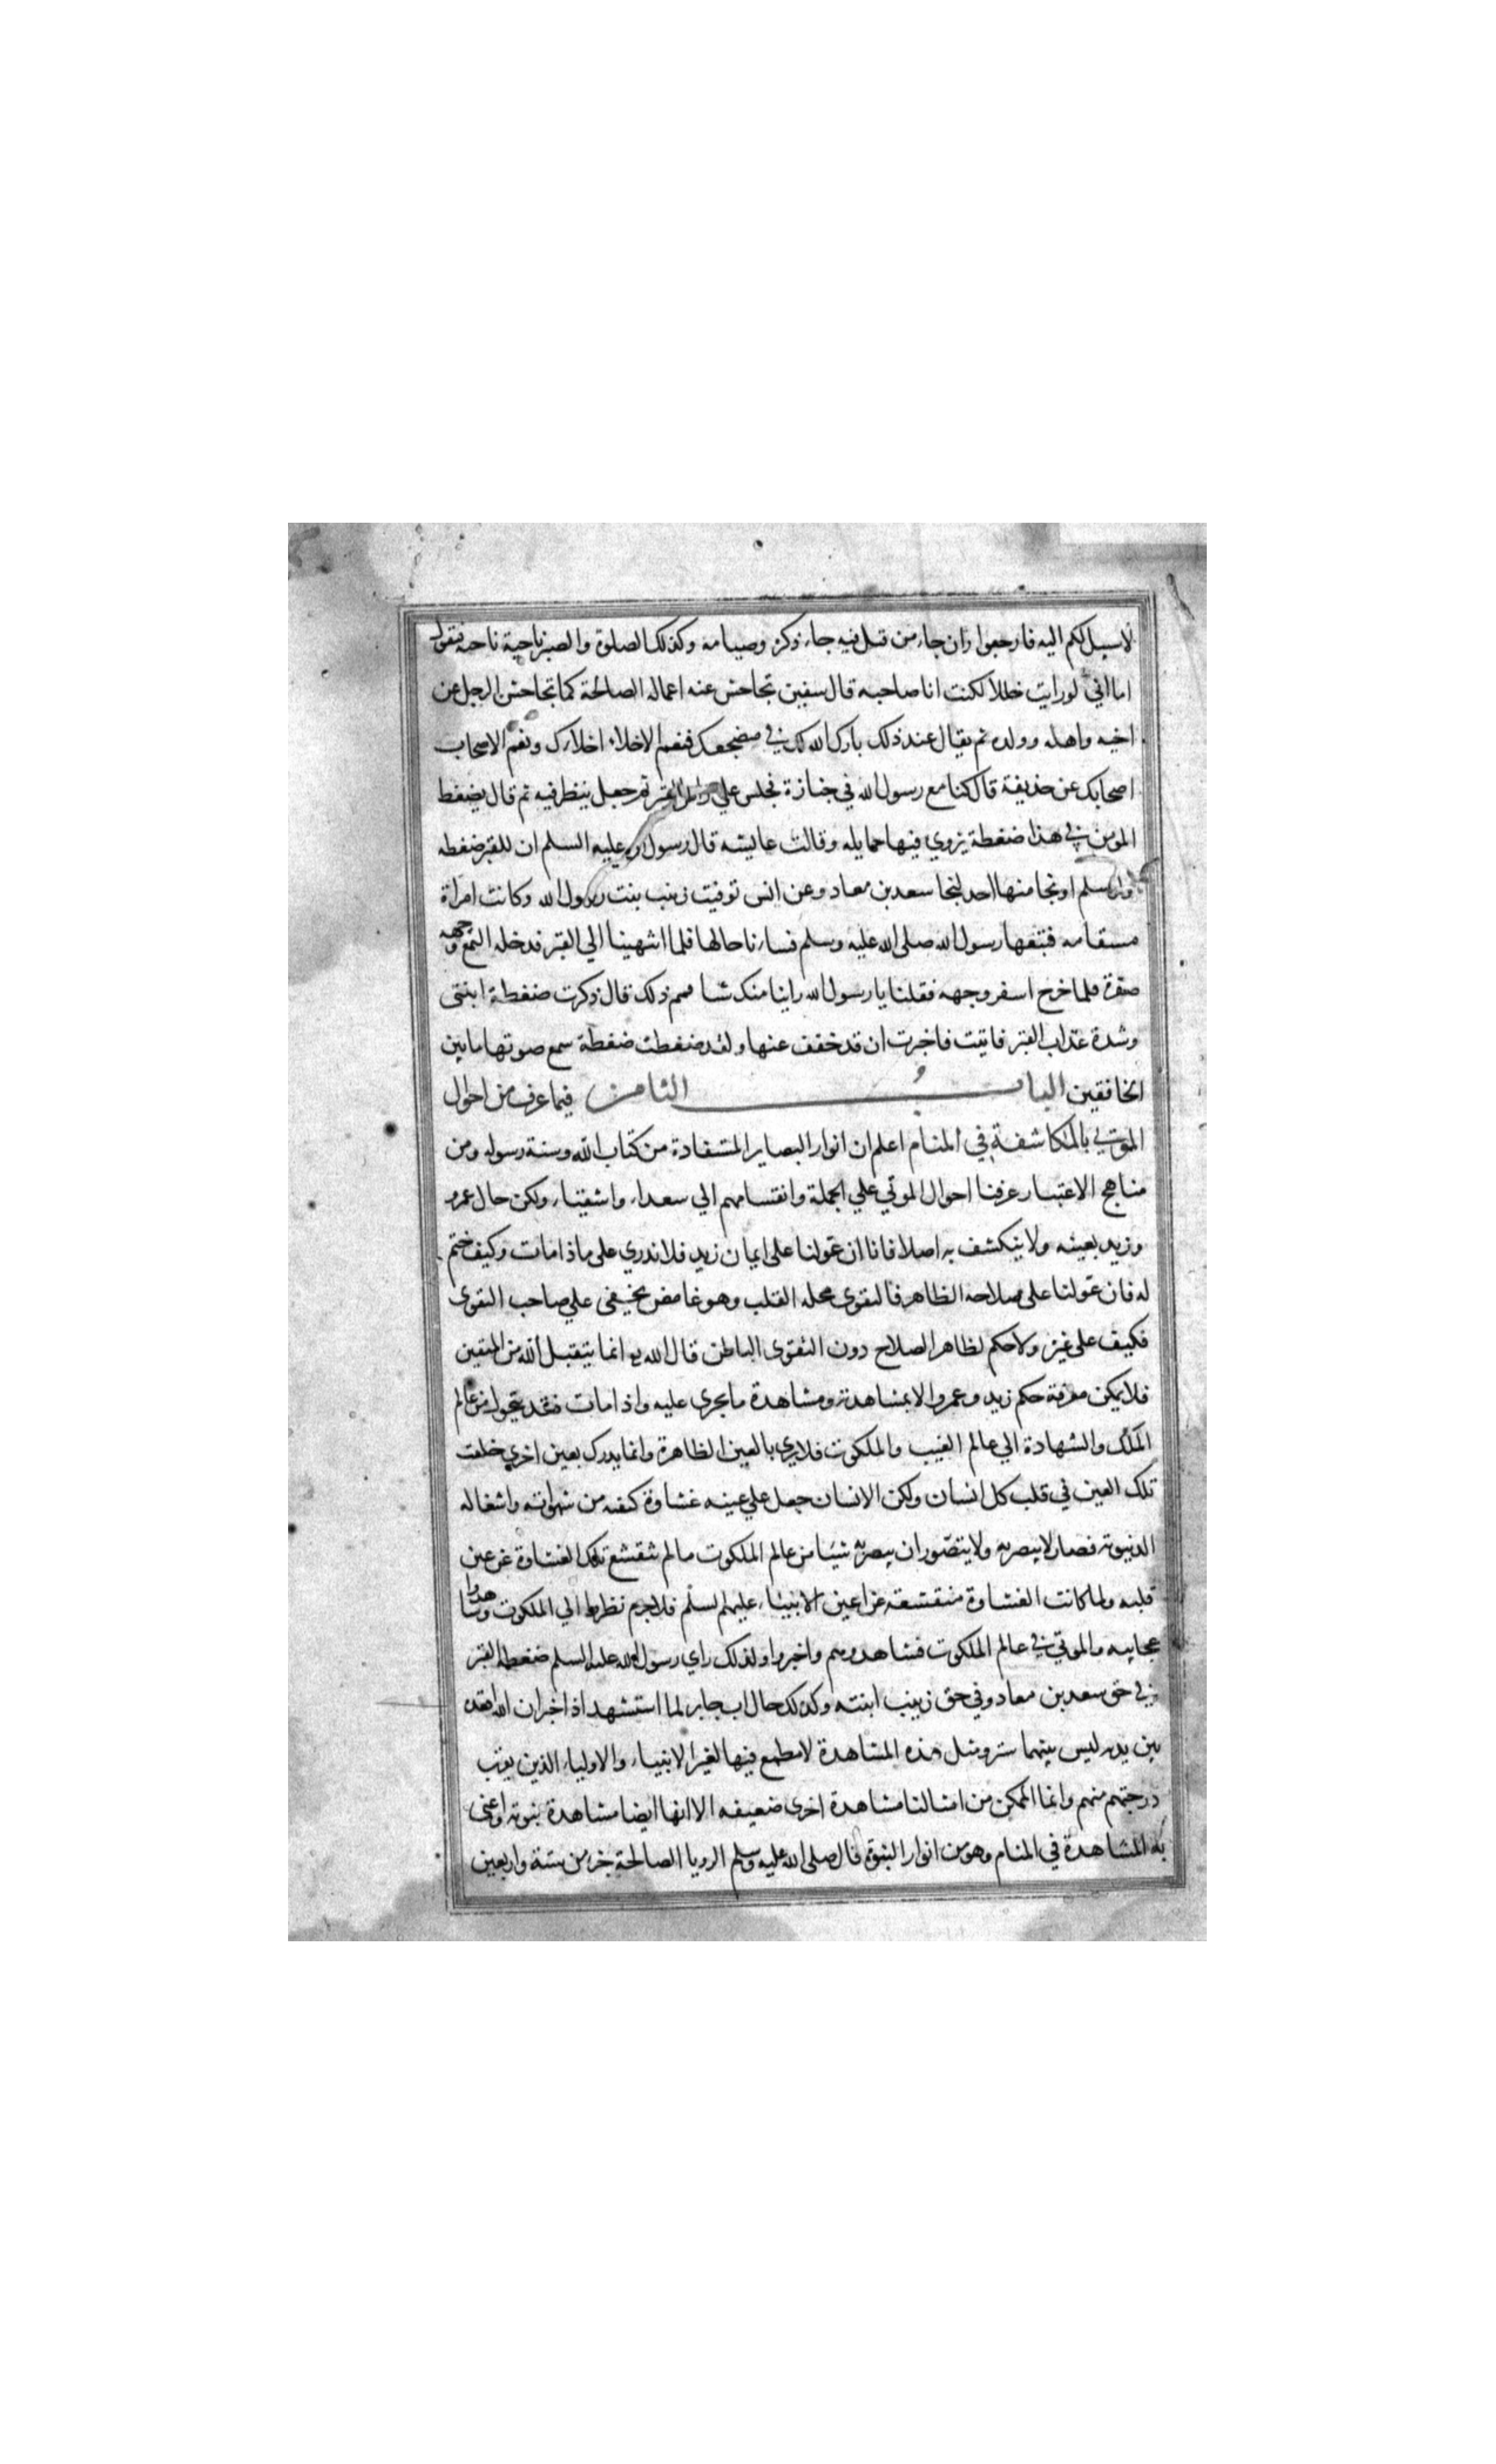 لاسبيل لكم اليه فارجعوا وان جاء من قبل فيه جاء ذكره وصيامه وكذلك الصلوة والصبر ناحية ناحيه فيقول
اما اني لو رايت خللا لكنت انا صاحبه قال سفين تجاحش عنه اعماله الصالحة كما تجاحش الرجل عن
اخيه واهله وولده ثم يقال عند ذلك بارك الله لك في مضجعك فنعم الاخلاء اخلاوك ونعم الاصحاب
اصحابك عن حذيفة قال كنا مع رسول الله في جنازة فجلس علي راس القبر ثم جعل ينظر فيه ثم قال يضغط
المومن في هذا ضغطة يزوي فيها حمايله وقالت عايشه قال رسول الله عليه السلم ان للقبر ضغطه
ولو سلم او نجا منها احد لنجا سعد بن معاد وعن انس توفيت زينب بنت رسول الله وكانت امراة
مسقامه فتبعها رسول الله صلى الله عليه وسلم فساءنا حالها فلما انتهينا الي القبر فدخله التمع وجهه
صفرة فلما خرج اسفر وجهه فقلنا يا رسول الله راينا منك شا فمم ذلك قال ذكرت ضغطة ابنتى
وشدة عذاب القبر فاتيت فاخبرت ان قد خفف عنها ولقد ضغطت ضغطة سمع صوتها ما بين
الخافقين الباب الثامن فيما عرف من احوال
الموتي بالمكاشفة في المنام اعلم ان انوار البصاير المستفادة من كتاب الله وسنة رسوله ومن
مناهج الاعتبار عرفنا احوال الموتي علي الجملة وانقسامهم الي سعداء واشقياء ولكن حال عمرو
وزيد بعينه ولا ينكشف به اصلا فانا ان عولنا على ايمان زيد فلا ندري على ماذا مات وكيف ختم
له فان عولنا على صلاحه الظاهر فالتقوى محله القلب وهو غامض يخفى علي صاحب التقوى
فكيف على غيره ولا حكم لظاهر الصلاح دون التقوى الباطن قال الله تع انما يتقبل الله من المتقين
فلا يمكن معرفة حكم زيد وعمرو الا بمشاهدته ومشاهدة ما يجرى عليه واذا مات فقد تحول من عالم
الملك والشهادة الي عالم الغيب والملكوت فلا يري بالعين الظاهرة وانما يدرك بعين اخري خلقت
تلك العين في قلب كل انسان ولكن الانسان جعل علي عينه غشاوة كثفه من شهواته واشغاله
الدنيوية فصار لا يبصر به ولا يتصور ان يبصر به شيئا من عالم الملكوت ما لم تنقشع تلك الغشاوة عن عين
قلبه ولما كانت الغشاوة منقشعة عن اعين الانبياء عليهم السلم فلا جرم نظروا الي الملكوت وشاهدوا
عجايبه والموتي في عالم الملكوت فشاهدوهم واخبروا ولذلك راي رسول الله عليه السلم ضغطه القبر
في حق سعد بن معاد وفي حق زينب ابنته وكذلك حال اب جابر لما استشهد اذ اخبر ان الله اقعده
بين يديه ليس بينهما ستر ومثل هذه المشاهدة لا مطمع فيها لغير الانبياء والاولياء الذين يقرب
درجتهم منهم وانما الممكن من امثالنا مشاهدة اخرى ضعيفه الا انها ايضا مشاهدة نبوية واعنى
به المشاهدة في المنام وهو من انوار النبوة قال صلى الله عليه وسلم الرويا الصالحة جزء من ستة واربعين